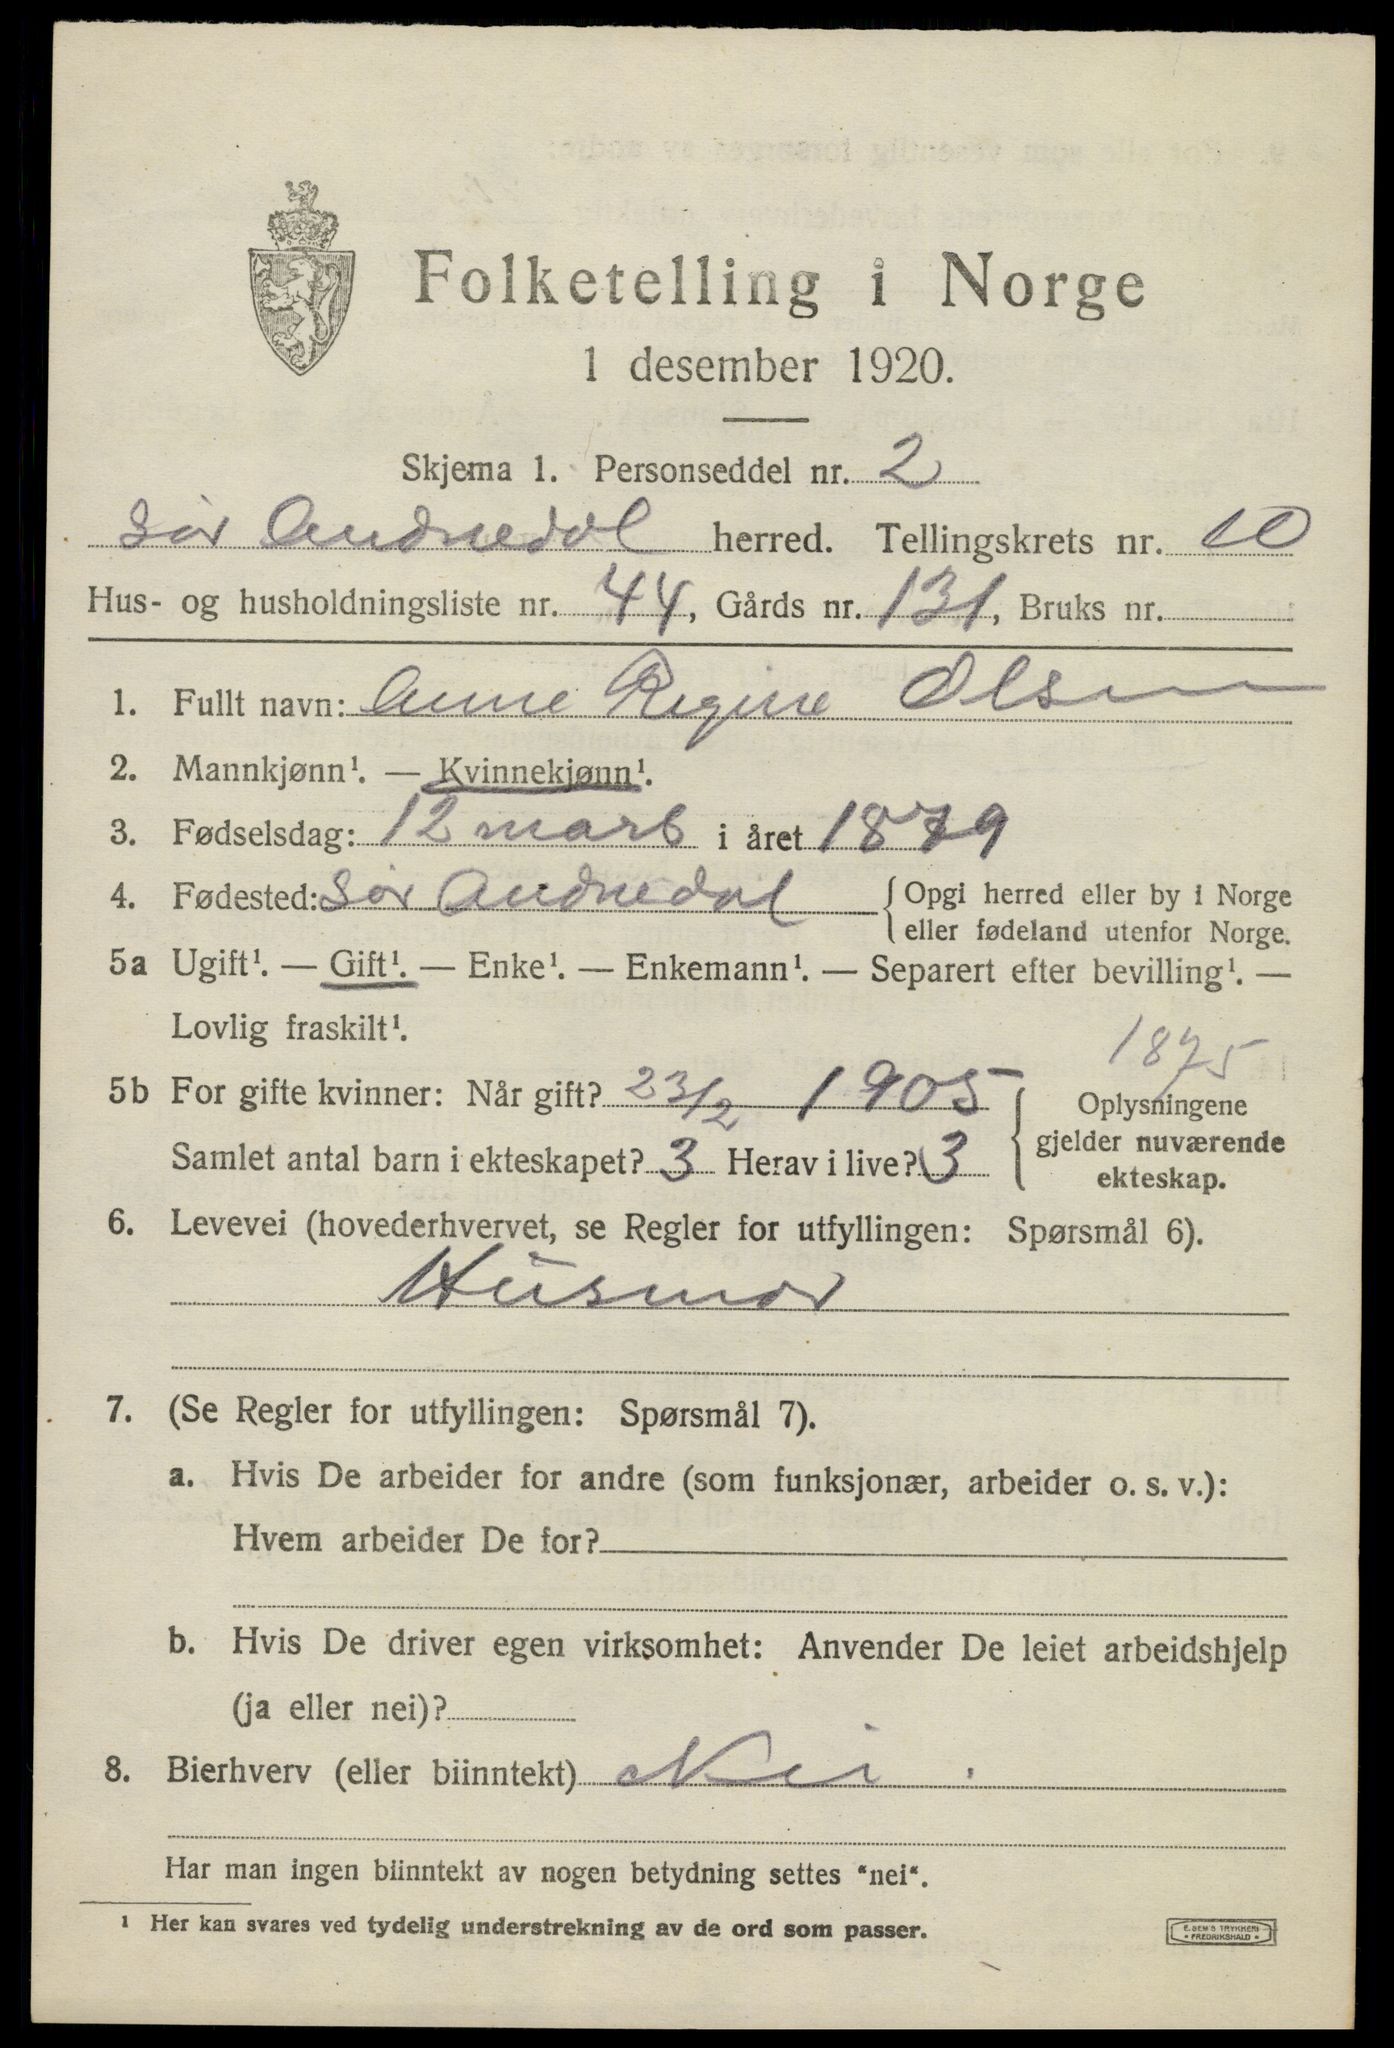 Folketelling i Norge
1 desember 1920.
Skjema 1. Personseddel nr. 2
Sør Audnedal herred. Tellingskrets nr. 10
Hus- og husholdningsliste nr. 44, Gårds nr. 131, Bruks nr.
1. Fullt navn: Anne Regine Olsen
2. Mannkjønn¹. — Kvinnekjønn¹.
3. Fødselsdag: 12 mars i året 1879
4. Fødested: Sør Audnedal { Opgi herred eller by i Norge
eller fødeland utenfor Norge.
5a Ugift¹. — Gift¹. — Enke¹. — Enkemann¹. — Separert efter bevilling¹. —
Lovlig fraskilt¹.
1875
5b For gifte kvinner: Når gift? 23/2 1905 { Oplysningene
gjelder nuværende
ekteskap.
Samlet antal barn i ekteskapet? 3 Herav i live? 3
6. Levevei (hovederhvervet, se Regler for utfyllingen: Spørsmål 6).
Husmor
7. (Se Regler for utfyllingen: Spørsmål 7).
a. Hvis De arbeider for andre (som funksjonær, arbeider o. s. v.):
Hvem arbeider De for?
b. Hvis De driver egen virksomhet: Anvender De leiet arbeidshjelp
(ja eller nei)?
8. Bierhverv (eller biinntekt) Nei.
Har man ingen biinntekt av nogen betydning settes "nei".
¹ Her kan svares ved tydelig understrekning av de ord som passer.
E. SEM'S TRYKKERI
• FREDRIKSHALD •